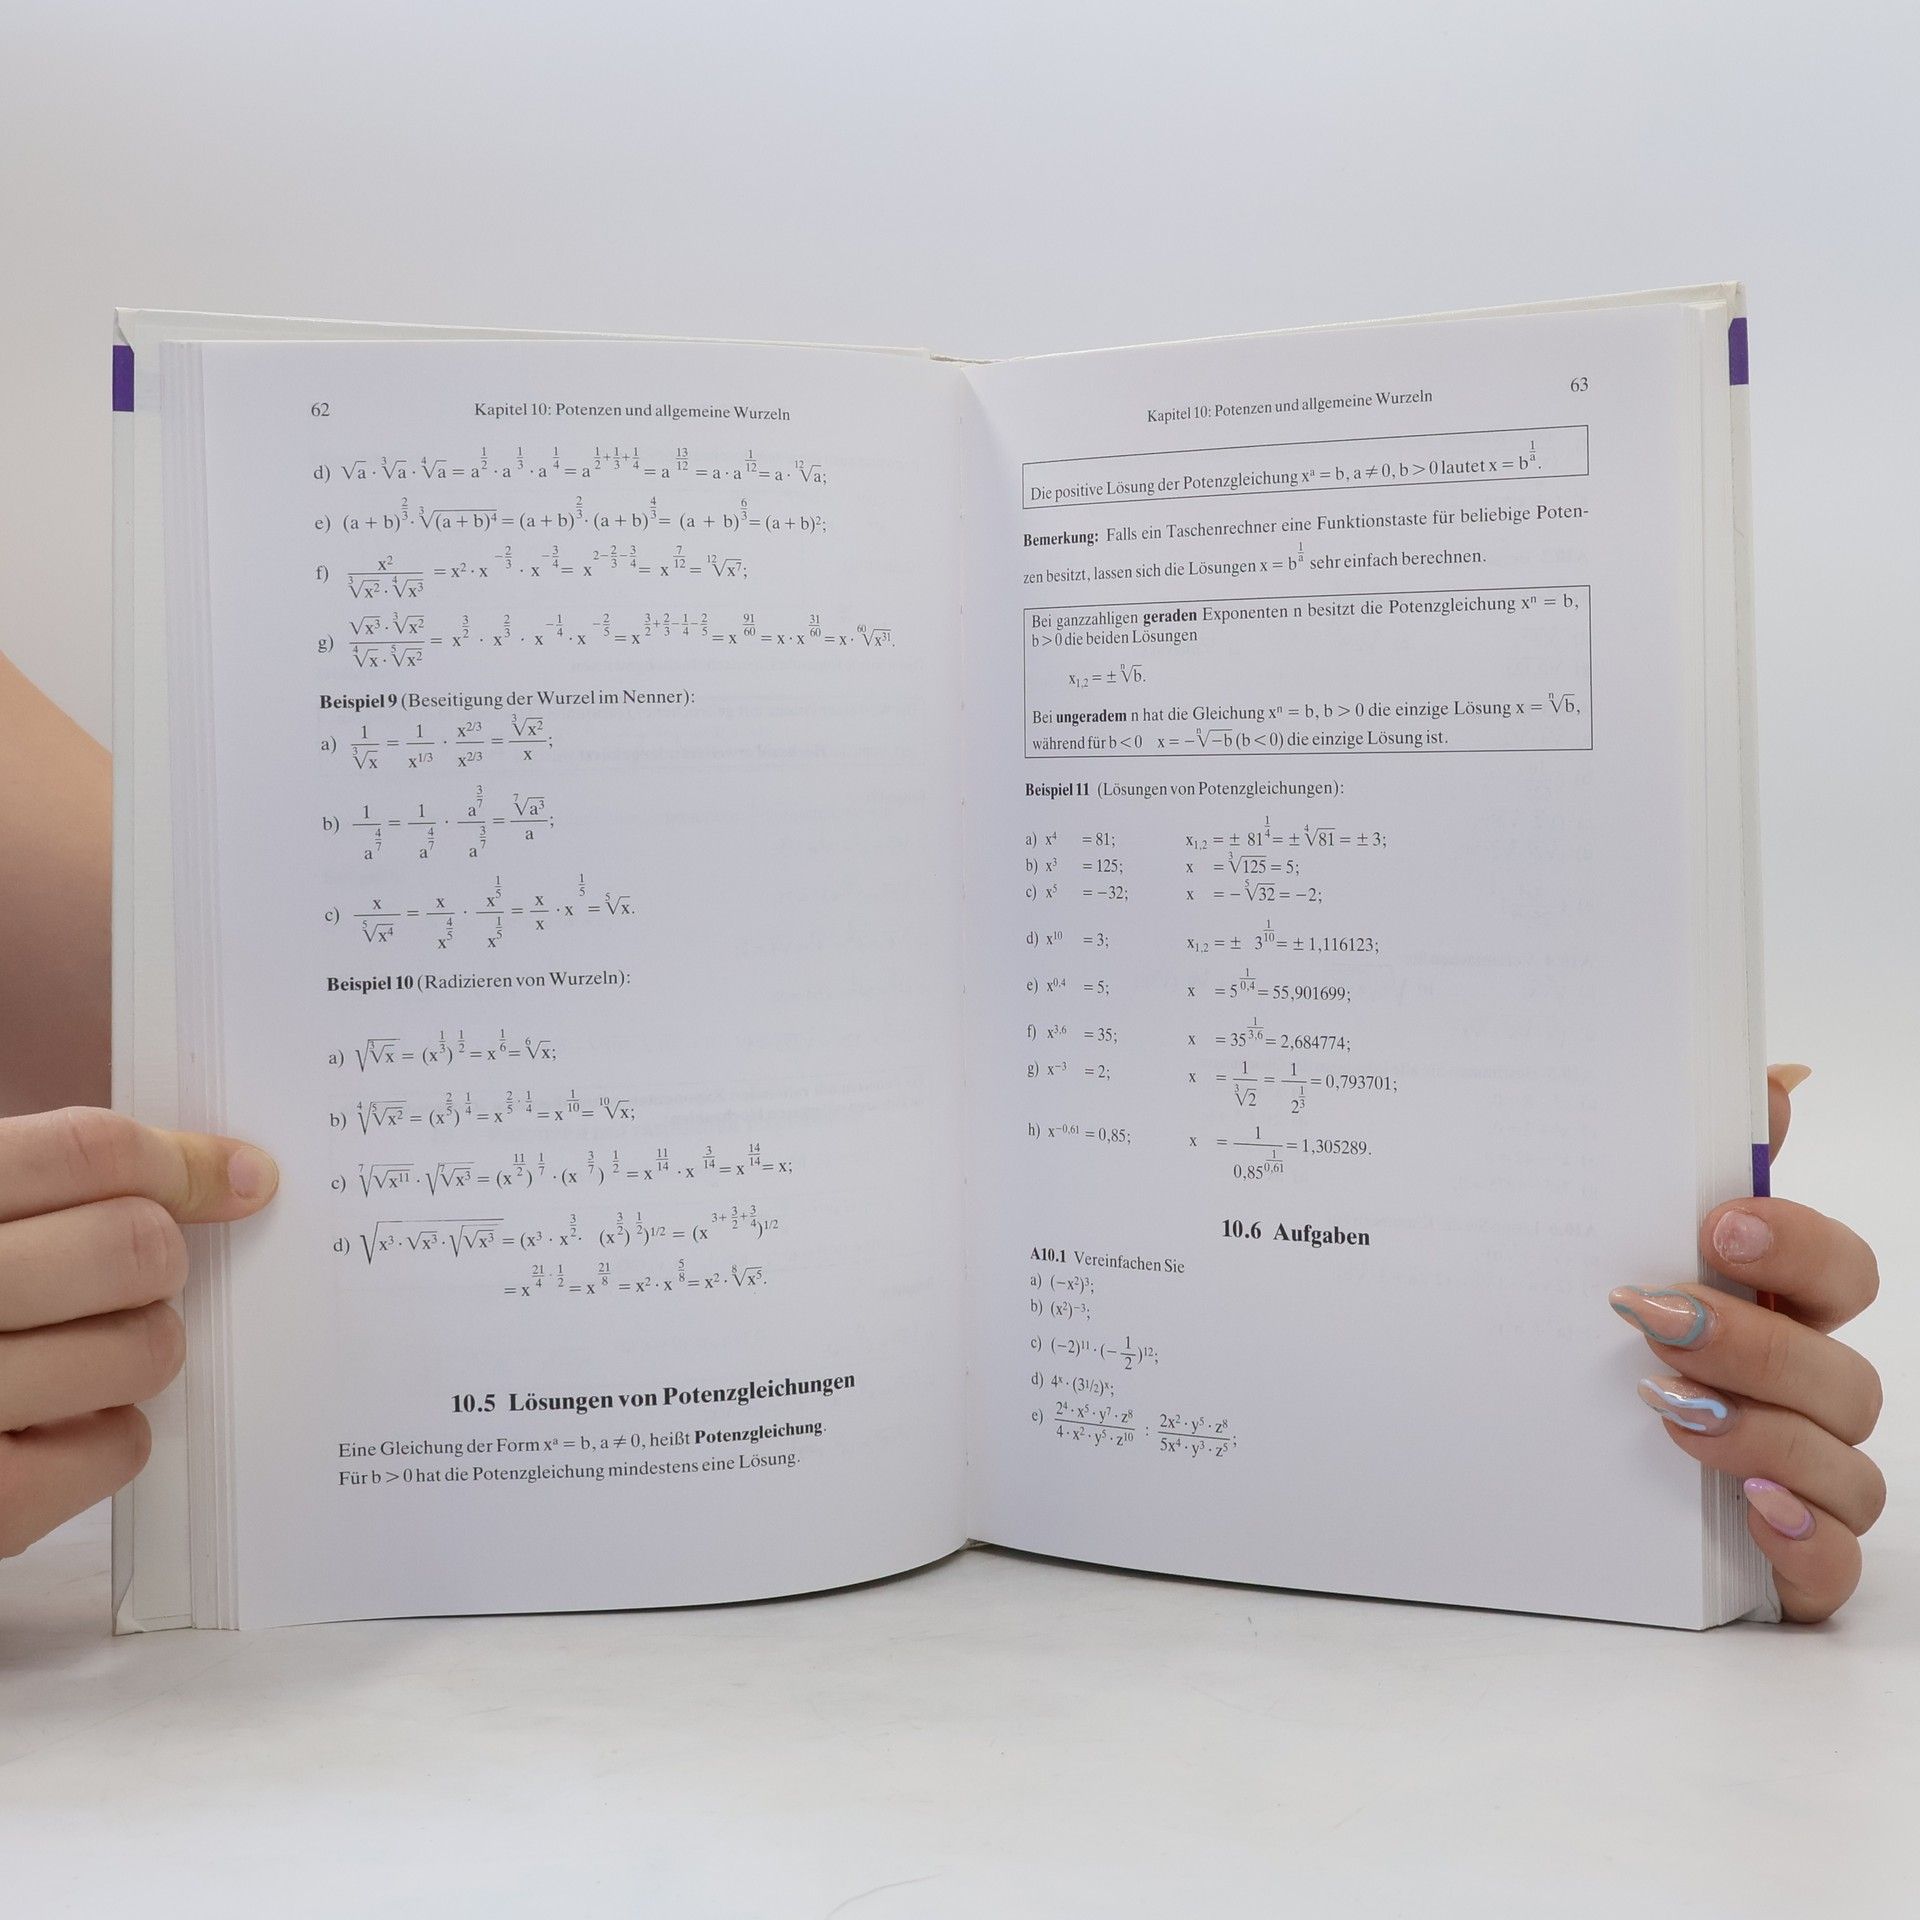 62 Kapitel 10: Potenzen und allgemeine Wurzeln
d) √a · ³√a · ⁴√a = a^(1/2) · a^(1/3) · a^(1/4) = a^(1/2+1/3+1/4) = a^(13/12) = a · a^(1/12) = a · ¹²√a;
e) (a + b)^(2/3) · ³√((a + b)⁴) = (a + b)^(2/3) · (a + b)^(4/3) = (a + b)^(6/3) = (a + b)²;
f) x²/(³√(x²) · ⁴√(x³)) = x² · x^(−2/3) · x^(−3/4) = x^(2−2/3−3/4) = x^(7/12) = ¹²√(x⁷);
g) (√(x³) · ³√(x²))/(⁴√x · ⁵√(x²)) = x^(3/2) · x^(2/3) · x^(−1/4) · x^(−2/5) = x^(3/2+2/3−1/4−2/5) = x^(91/60) = x · x^(31/60) = x · ⁶⁰√(x³¹).
Beispiel 9 (Beseitigung der Wurzel im Nenner):
a) 1/³√x = 1/x^(1/3) · x^(2/3)/x^(2/3) = ³√(x²)/x;
b) 1/a^(4/7) = 1/a^(4/7) · a^(3/7)/a^(3/7) = ⁷√(a³)/a;
c) x/⁵√(x⁴) = x/x^(4/5) · x^(1/5)/x^(1/5) = x/x · x^(1/5) = ⁵√x.
Beispiel 10 (Radizieren von Wurzeln):
a) √(³√x) = (x^(1/3))^(1/2) = x^(1/6) = ⁶√x;
b) ⁴√(⁵√(x²)) = (x^(2/5))^(1/4) = x^(2/5 · 1/4) = x^(1/10) = ¹⁰√x;
c) ⁷√(√(x¹¹)) · √(⁷√(x³)) = (x^(11/2))^(1/7) · (x^(3/7))^(1/2) = x^(11/14) · x^(3/14) = x^(14/14) = x;
d) √(x³ · √(x³) · √(√(x³))) = (x³ · x^(3/2) · (x^(3/2))^(1/2))^(1/2) = (x^(3+3/2+3/4))^(1/2)
= x^(21/4 · 1/2) = x^(21/8) = x² · x^(5/8) = x² · ⁸√(x⁵).
10.5 Lösungen von Potenzgleichungen
Eine Gleichung der Form xᵃ = b, a ≠ 0, heißt Potenzgleichung.
Für b > 0 hat die Potenzgleichung mindestens eine Lösung.
Kapitel 10: Potenzen und allgemeine Wurzeln 63
Die positive Lösung der Potenzgleichung xᵃ = b, a ≠ 0, b > 0 lautet x = b^(1/a).
Bemerkung: Falls ein Taschenrechner eine Funktionstaste für beliebige Poten-
zen besitzt, lassen sich die Lösungen x = b^(1/a) sehr einfach berechnen.
Bei ganzzahligen geraden Exponenten n besitzt die Potenzgleichung xⁿ = b,
b > 0 die beiden Lösungen
x₁,₂ = ± ⁿ√b.
Bei ungeradem n hat die Gleichung xⁿ = b, b > 0 die einzige Lösung x = ⁿ√b,
während für b < 0 x = −ⁿ√(−b) (b < 0) die einzige Lösung ist.
Beispiel 11 (Lösungen von Potenzgleichungen):
a) x⁴ = 81; x₁,₂ = ± 81^(1/4) = ± ⁴√81 = ± 3;
b) x³ = 125; x = ³√125 = 5;
c) x⁵ = −32; x = − ⁵√32 = −2;
d) x¹⁰ = 3; x₁,₂ = ± 3^(1/10) = ± 1,116123;
e) x^(0,4) = 5; x = 5^(1/0,4) = 55,901699;
f) x^(3,6) = 35; x = 35^(1/3,6) = 2,684774;
g) x⁻³ = 2; x = 1/³√2 = 1/2^(1/3) = 0,793701;
h) x^(−0,61) = 0,85; x = 1/0,85^(1/0,61) = 1,305289.
10.6 Aufgaben
A10.1 Vereinfachen Sie
a) (−x²)³;
b) (x²)⁻³;
c) (−2)¹¹ · (−1/2)¹²;
d) 4ˣ · (3^(1/2))ˣ;
e) (2⁴ · x⁵ · y⁷ · z⁸)/(4 · x² · y⁵ · z¹⁰) : (2x² · y⁵ · z⁸)/(5x⁴ · y³ · z⁵);